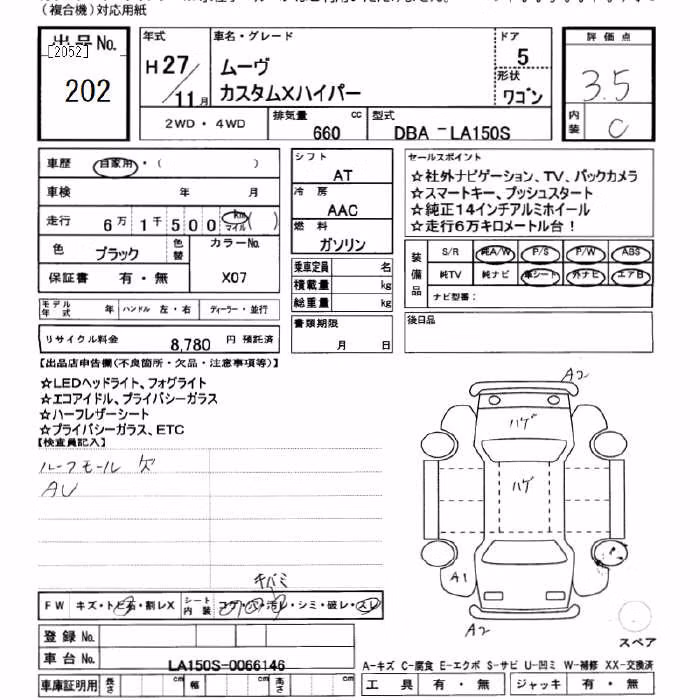 （複合機）対応用紙
出品No.
[2052]
202
年式
H27/11月
車名・グレード
ムーヴ
カスタムXハイパー
ドア
5
形状
ワゴン
評価点
3.5
内装
C
2WD・4WD
排気量 660 cc
型式 DBA - LA150S
車歴 自家用・（ ）
車検 年 月
走行 6万1千500 km マイル ( )
色 ブラック 色替
カラーNo. X07
保証書 有・無
モデル年式 年 ハンドル 左・右 ディーラー・並行
リサイクル料金 8,780 円 預託済
シフト
AT
冷房
AAC
燃料
ガソリン
乗車定員 名
積載量 kg
総重量 kg
書類期限
月 日
セールスポイント
☆社外ナビゲーション、TV、バックカメラ
☆スマートキー、プッシュスタート
☆純正14インチアルミホイール
☆走行6万キロメートル台！
装備品
S/R 純A/W P/S P/W ABS
純TV 純ナビ 革シート 外ナビ エアB
ナビ型番：
後日品
【出品店申告欄(不良箇所・欠品・注意事項等)】
☆LEDヘッドライト、フォグライト
☆エコアイドル、プライバシーガラス
☆ハーフレザーシート
☆プライバシーガラス、ETC
【検査員記入】
ルーフモール ズ
AU
A2
ハゲ
ハゲ
A1
A2
スペア
キバミ
FW キズ・トビ石・割レX
シート内装 コゲ・穴・汚レ・シミ・破レ・スレ
登録No.
車台No. LA150S-0066146
車庫証明用 長さ cm 幅 cm 高さ cm
A-キズ C-腐食 E-エクボ S-サビ U-凹ミ W-補修 XX-交換済
工具 有・無 ジャッキ 有・無